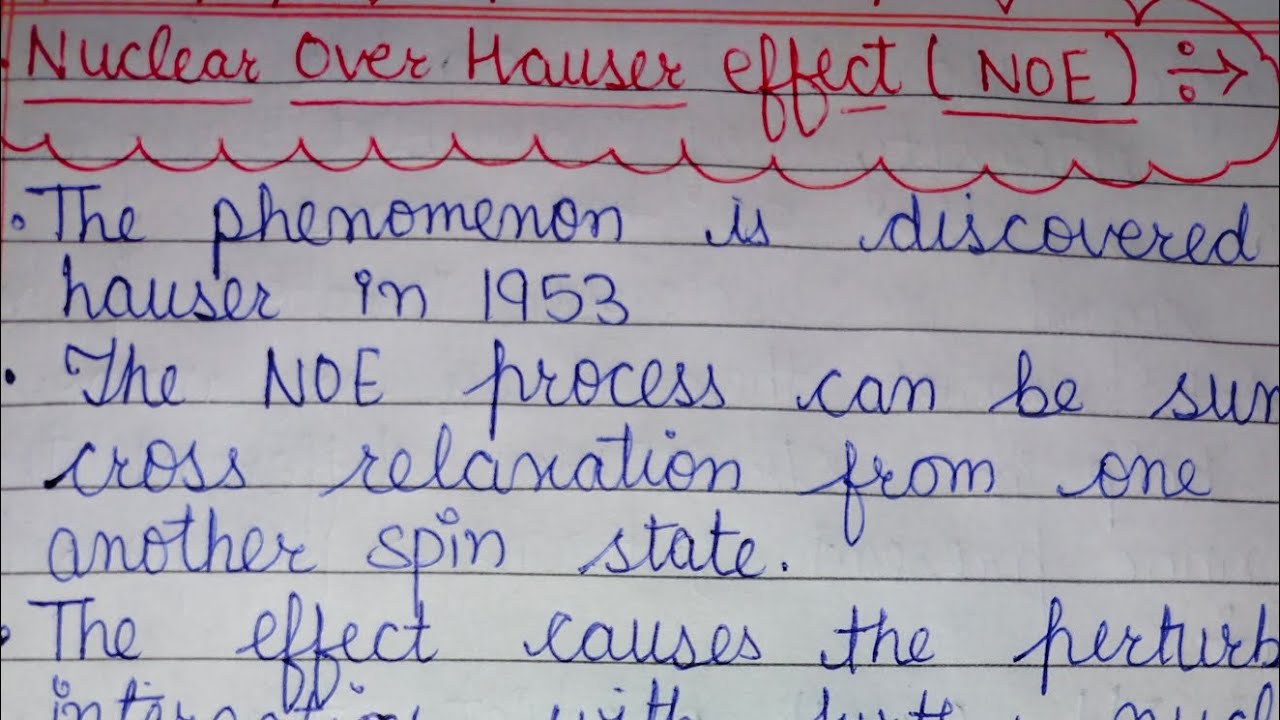 Nuclear Over Hauser effect (NOE) ÷→
• The phenomenon is discovered
hauser in 1953
• The NOE process can be sum
cross relaxation from one
another spin state.
• The effect causes the perturb
with